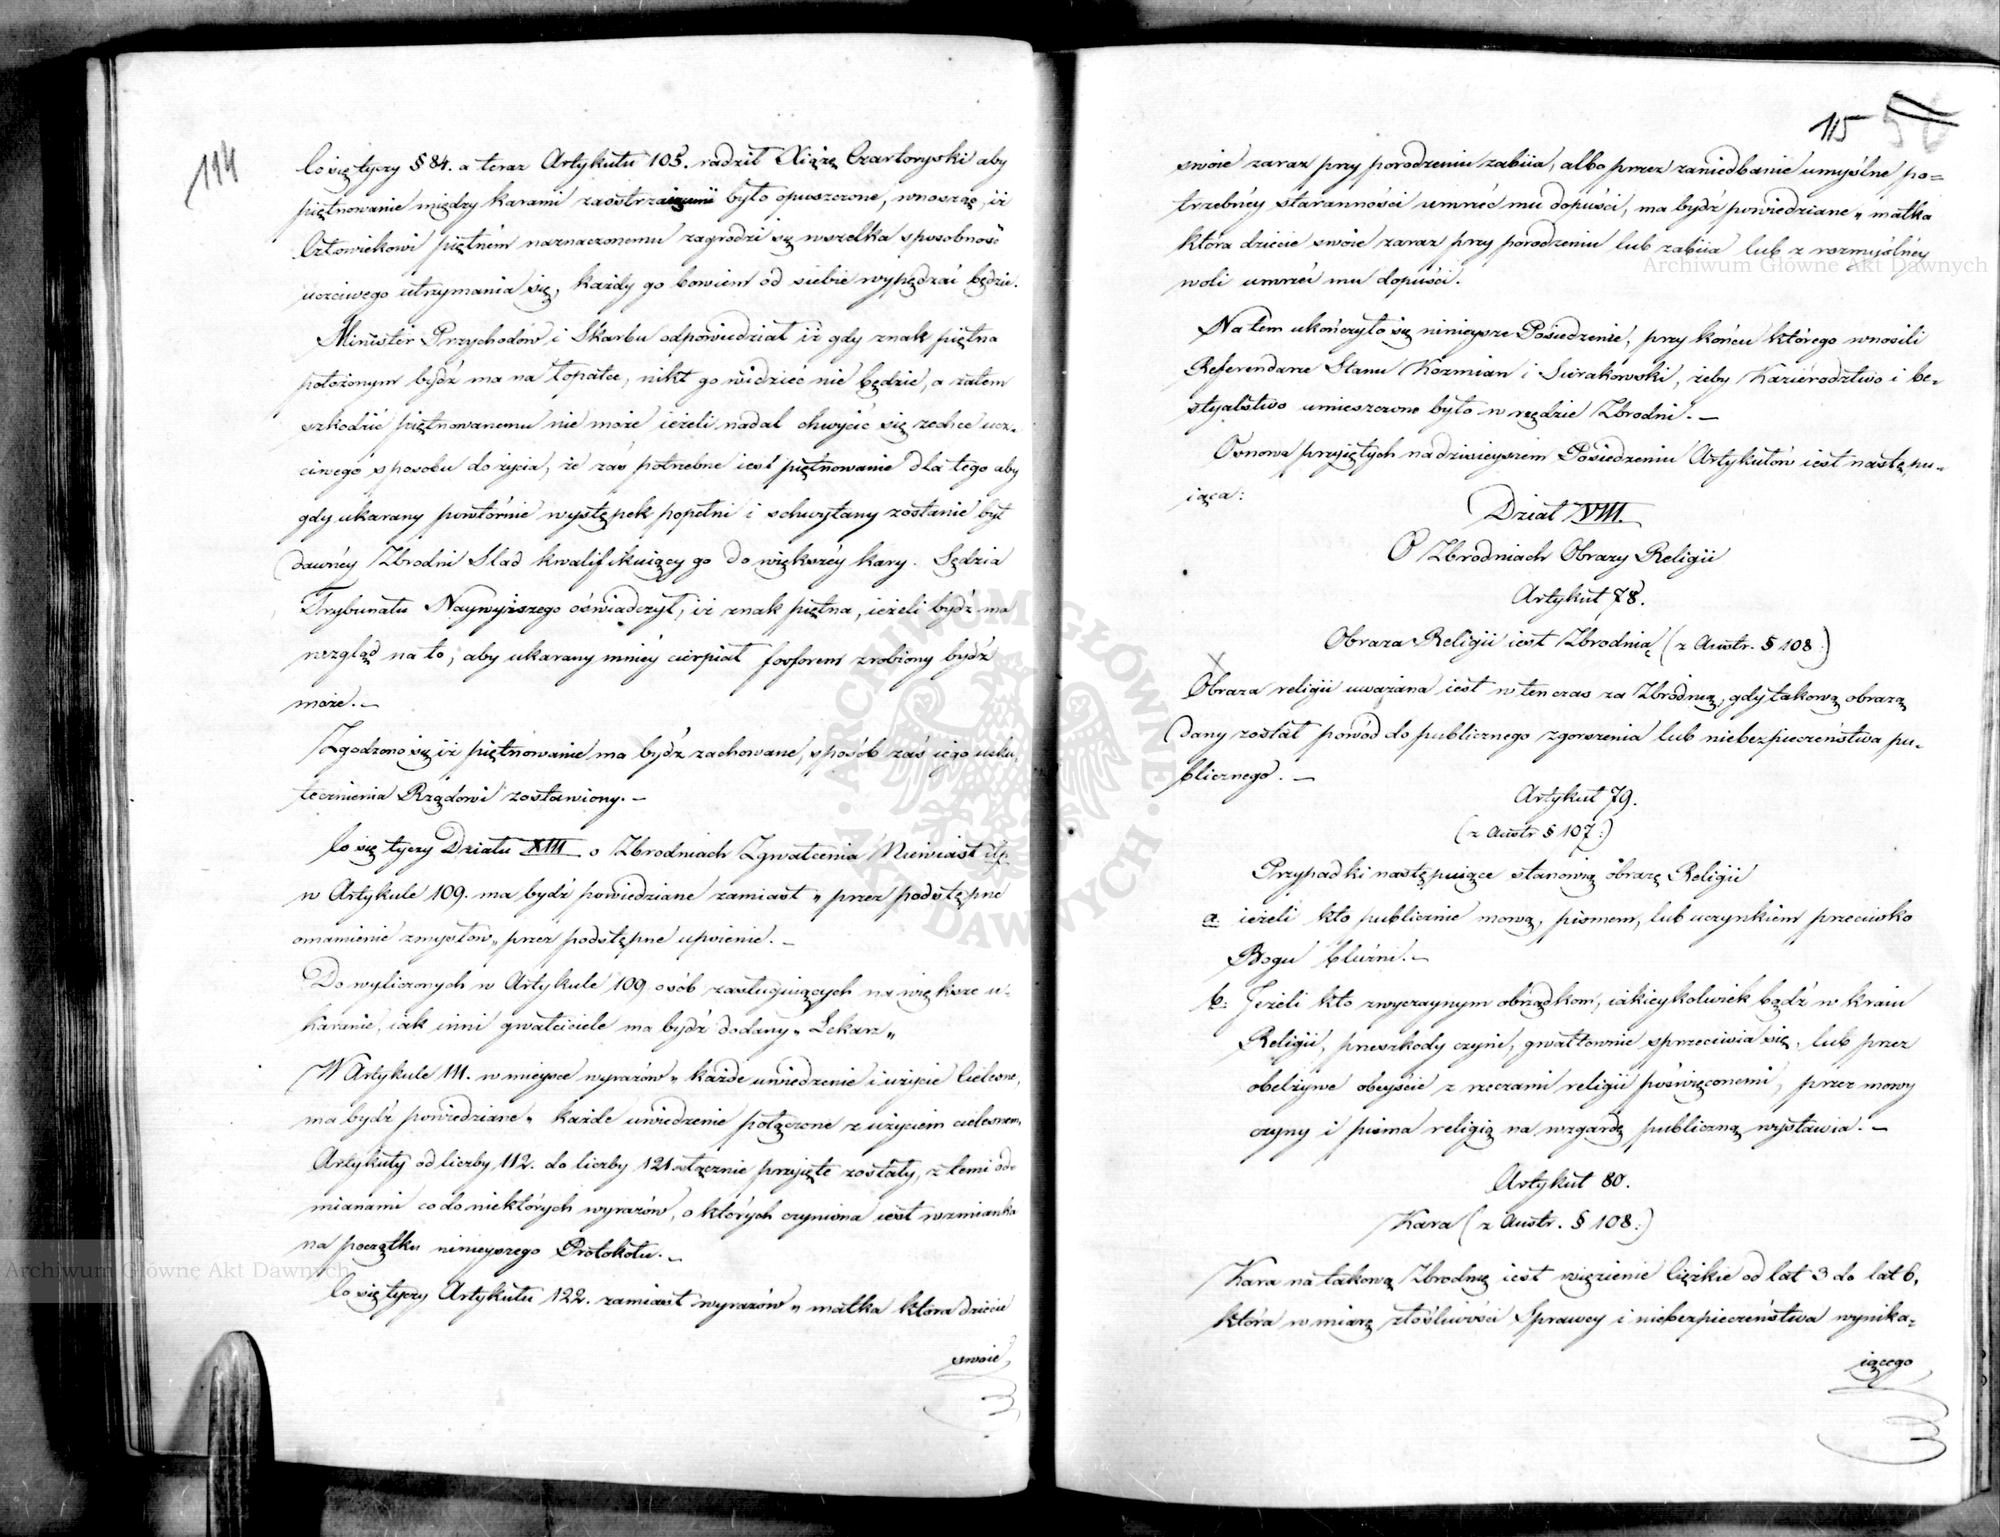 114
Co się tyczy § 84. a teraz Artykułu 105. radził Xiążę Czartoryski aby
piętnowanie między karami zaostrzaiącemi było opuszczone, wnosząc, iż
Człowiekowi piętnem naznaczonemu zagrodzi się wszelka sposobność
uczciwego utrzymania się, każdy go bowiem od siebie wypędzać będzie.
Minister Przychodów i Skarbu odpowiedział iż gdy znak piętna
położonym bydź ma na łopatce, nikt go widzieć nie będzie, a zatem
szkodzić piętnowanemu nie może ieżeli nadal chwycić się zechce ucz-
ciwego sposobu do życia, że zaś potrzebne iest piętnowanie dla tego aby
gdy ukarany powtórnie występek popełni i schwytany zostanie był
dawnéy Zbrodni Slad kwalifikuiący go do większéy kary. Sędzia
Trybunału Naywyższego oświadczył, iż znak piętna, ieżeli bydź ma
wzgląd na to, aby ukarany mniéy cierpiał fosforem zrobiony bydź
może. –
Zgodzono się iż piętnowanie ma bydź zachowane, sposób zaś iego usku-
tecznienia Rządowi zostawiony. –
Co się tyczy Działu XIII o Zbrodniach Zgwałcenia Niewiast itp
w Artykule 109. ma bydź powiedziane zamiast „ przez podstępne
omamienie zmysłów „ przez podstępne upoienie. –
Do wyliczonych w Artykule 109 osób zasługuiących na większe u-
karanie, iak inni gwałciciele ma bydź dodany „ Lekarz „
W Artykule 111. w mieysce wyrazów „ każde uwiedzenie i użycie Cielesne,
ma bydź powiedziane „ każde uwiedzenie połączone z użyciem cielesnem,
Artykuły od liczby 112. do liczby 121 włącznie przyięte zostały, z temi od-
mianami co do niektórych wyrazów, o których czyniona iest wzmianka
na początku ninieyszego Protokołu. –
Co się tyczy Artykułu 122. zamiast wyrazów „ matka która dziecie
swoie
115 58
swoie zaraz przy porodzeniu zabiia, albo przez zaniedbanie umyślne po-
trzebnéy staranności umrzéć mu dopuści, ma bydź powiedziane „ matka
która dziecie swoie zaraz przy porodzeniu lub zabiia lub z rozmyślnéy
woli umrzéć mu dopuści.
Na tem ukończyło się ninieysze Posiedzenie, przy końcu którego wnosili
Referendarze Stanu Kozmian i Sierakowski, żeby Kazirodztwo i be-
styalstwo umieszczone było w rzędzie Zbrodni. –
Osnowa przyiętych na dzisieyszem Posiedzeniu Artykułów iest następu-
iąca:
Dział XVIII.
O Zbrodniach Obrazy Religii
Artykuł 78.
Obraza Religii iest Zbrodnią (z Austr. § 108:)
Obraza religii uważana iest w ten czas za Zbrodnią, gdy takową obrazą
dany został powód do publicznego zgorszenia lub niebezpieczeństwa pu-
blicznego. –
Artykuł 79.
(z Austr § 107:)
Przypadki następuiące stanowią obrazę Religii
a ieżeli kto publicznie mową, pismem, lub uczynkiem przeciwko
Bogu bluźni. –
b: Jeżeli kto zwyczaynym obrządkom, iakieykolwiek bądź w kraiu
Religii, przeszkody czyni, gwałtownie sprzeciwia się, lub przez
obelżywe obeyście z rzeczami religii poświęconemi, przez mowy
czyny i pisma religią na wzgardę publiczną wystawia. –
Artykuł 80.
Kara (z Austr. § 108:)
Kara na takową Zbrodnię iest więzienie Ciężkie od lat 3 do lat 6,
która w miarę złośliwości Sprawcy i niebezpieczeństwa wynika-
iącego
Archiwum Główne Akt Dawnych
Archiwum Główne Akt Dawnych
ARCHIWUM GŁÓWNE AKT DAWNYCH